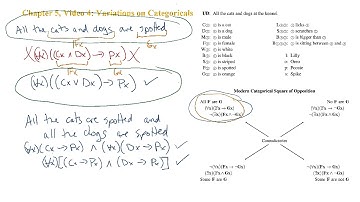 Chapter 5, Video 4: Variations on Categoricals
All the cats and dogs are spotted
X (∀x)((Cx ∧ Dx) → Px) X
Fx
Gx
(∀x)((Cx ∨ Dx) → Px) ✓
Fx
Gx
All the cats are spotted and
all the dogs are spotted
(∀x)(Cx → Px) ∧ (∀x)(Dx → Px) ✓
(∀x)[(Cx → Px) ∧ (Dx → Px)] ✓
UD: All the cats and dogs at the kennel
C①: ① is a cat
D①: ① is a dog
M①: ① is male
F①: ① is female
W①: ① is white
B①: ① is black
S①: ① is striped
P①: ① is spotted
O①: ① is orange
L①②: ① licks ②
S①②: ① scratches ②
B①②: ① is bigger than ②
B①②③: ① is sitting between ② and ③
l: Lilly
o: Oreo
p: Pennie
s: Spike
Modern Categorical Square of Opposition
All F are G
(∀x)(Fx → Gx)
¬(∃x)(Fx ∧ ¬Gx)
No F are G
(∀x)(Fx → ¬Gx)
¬(∃x)(Fx ∧ Gx)
Contradictories
¬(∀x)(Fx → ¬Gx)
(∃x)(Fx ∧ Gx)
Some F are G
¬(∀x)(Fx → Gx)
(∃x)(Fx ∧ ¬Gx)
Some F are not G